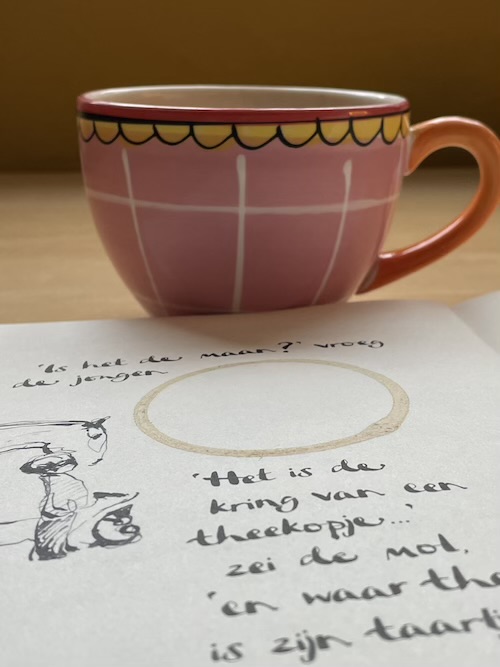 'Is het de maan?' vroeg
de jongen
'Het is de
kring van een
theekopje...'
zei de mol,
'en waar the
is zijn taartj